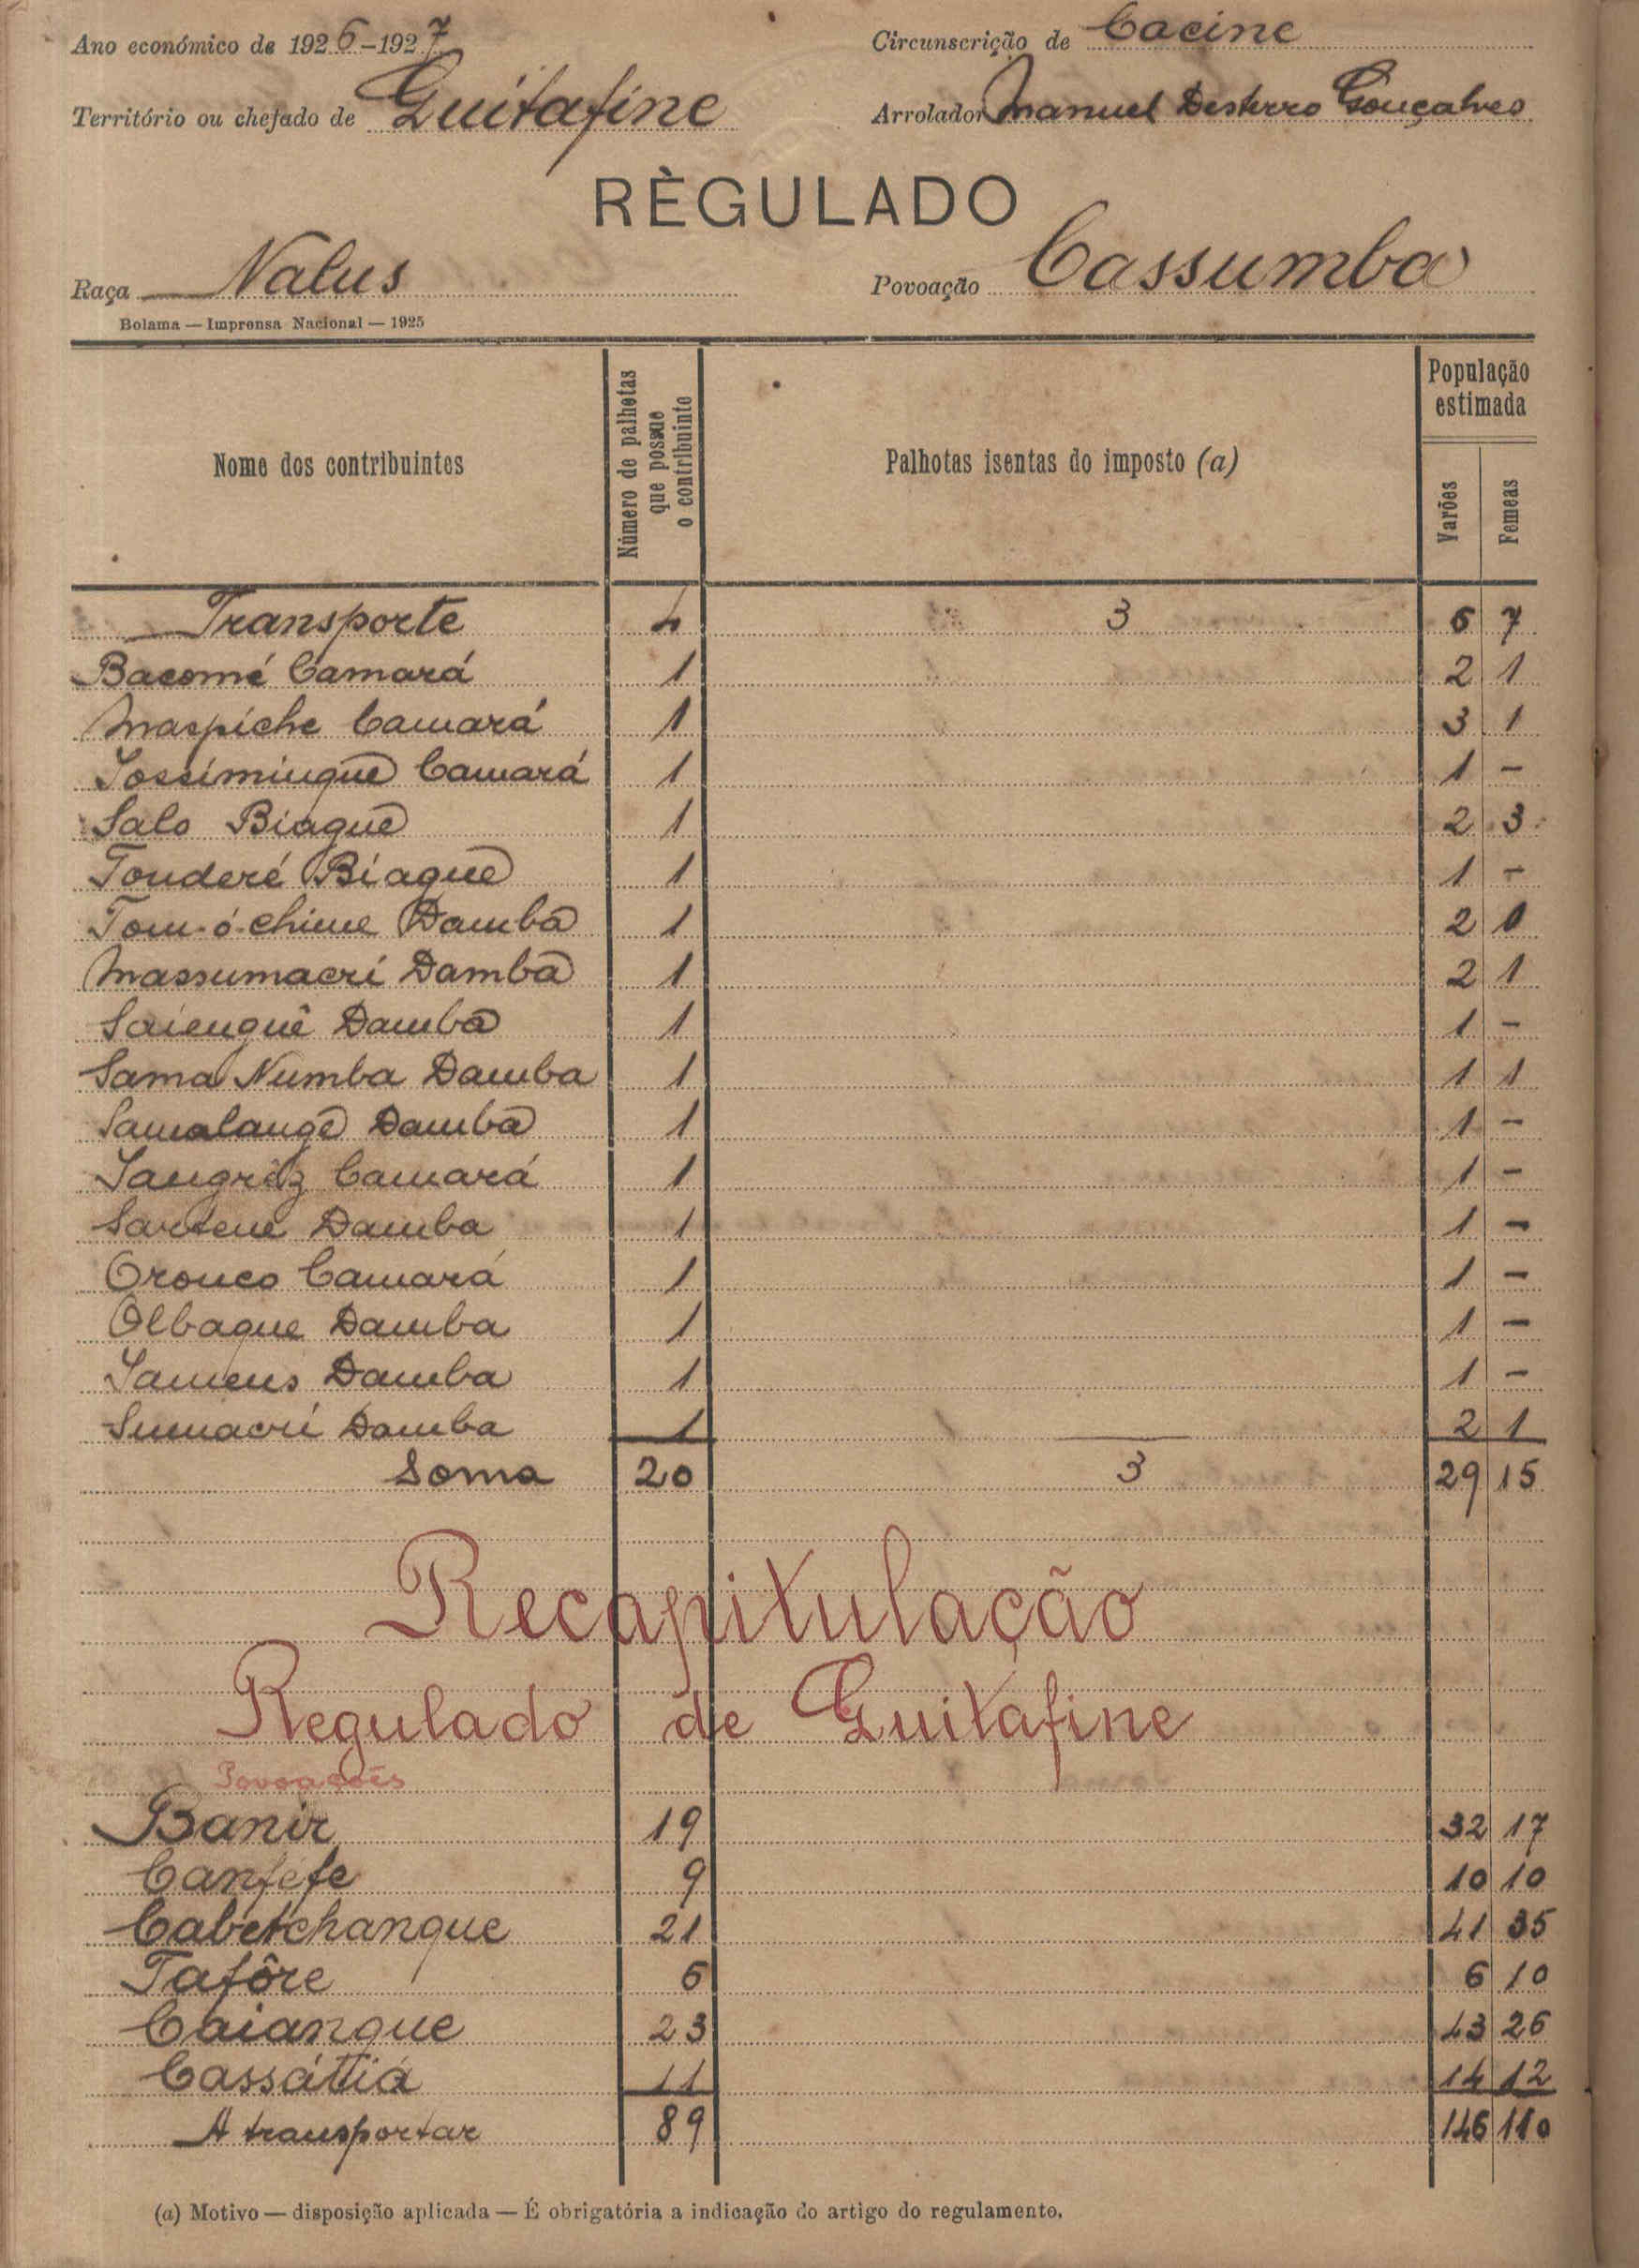 Ano económico de 1926-1927
Circunscrição de Cacine
Território ou chefado de Guitafine
Arrolador Manuel Desterro Gonçalves
RÈGULADO
Raça Nalus
Povoação Cassumba
Bolama — Imprensa Nacional — 1925
Nome dos contribuintes
Número de palhotas que possue o contribuinte
Palhotas isentas do imposto (a)
População estimada
Varões
Femeas
Transporte 4 3 6 7
Bacomé Camará 1 2 1
Maspiche Camará 1 3 1
Jossimingue Camará 1 1 -
Salo Biague 1 2 3
Tonderé Biague 1 1 -
Tom-ó-chime Damba 1 2 0
Massumacri Damba 1 2 1
Saienguê Damba 1 1 -
Sama Numba Damba 1 1 1
Samalange Damba 1 1 -
Sangriz Camará 1 1 -
Sartene Damba 1 1 -
Oronco Camará 1 1 -
Olbaque Damba 1 1 -
Jameus Damba 1 1 -
Sumacri Damba 1 2 1
Soma 20 3 29 15
Recapitulação
Regulado de Guitafine
Povoações
Banir 19 32 17
Canféfe 9 10 10
Cabetchanque 21 41 35
Tafôre 6 6 10
Caianque 23 43 26
Cassáttiá 11 14 12
A transportar 89 146 110
(a) Motivo — disposição aplicada — É obrigatória a indicação do artigo do regulamento.